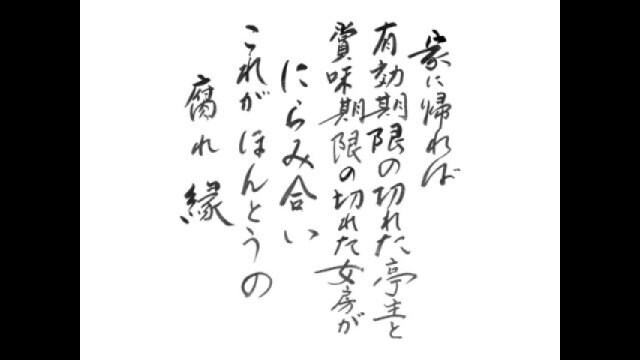 家に帰れば
有効期限の切れた亭主と
賞味期限の切れた女房が
にらみ合い
これがほんとうの
腐れ縁